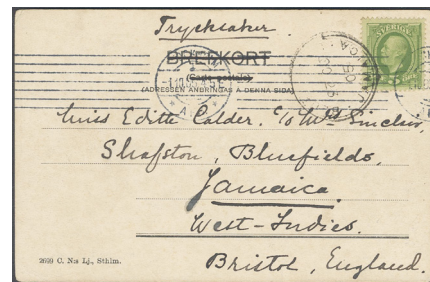 Trycksaker.
BREFKORT
(Carte postale)
(ADRESSEN ANBRINGAS Å DENNA SIDA)
SVERIGE
Miss Edith Calder. c/o Mrs Sinclair,
Shafston, Bluefields,
Jamaica.
West-Indies.
Bristol, England.
2699 C. N:s Lj., Sthlm.